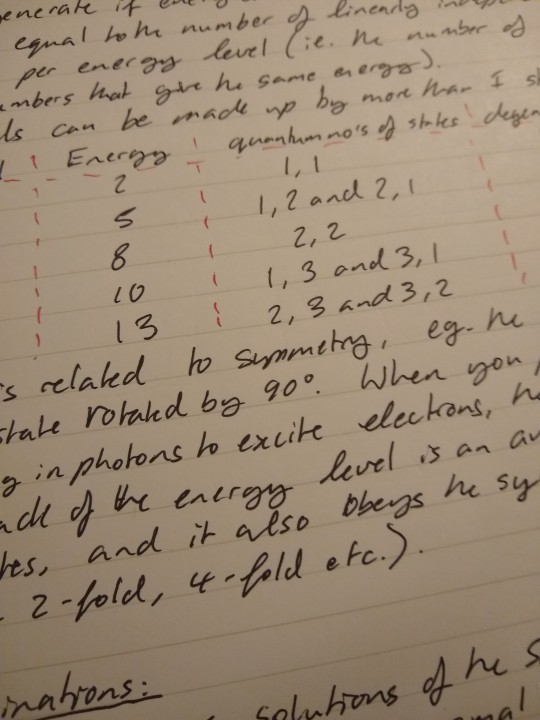 enerate if energ
equal to the number of linearly indepe
per energy level (ie. the number of
umbers that give the same energy).
ls can be made up by more than 1 st
Energy quantum no's of states degen
2 1, 1
5 1, 2 and 2, 1
8 2, 2
10 1, 3 and 3, 1
13 2, 3 and 3, 2
is related to symmetry, eg. the
state rotated by 90°. When you
g in photons to excite electrons, th
ack of the energy level is an av
tes, and it also obeys the sy
2-fold, 4-fold etc.).
inations:
solutions of the S
mal